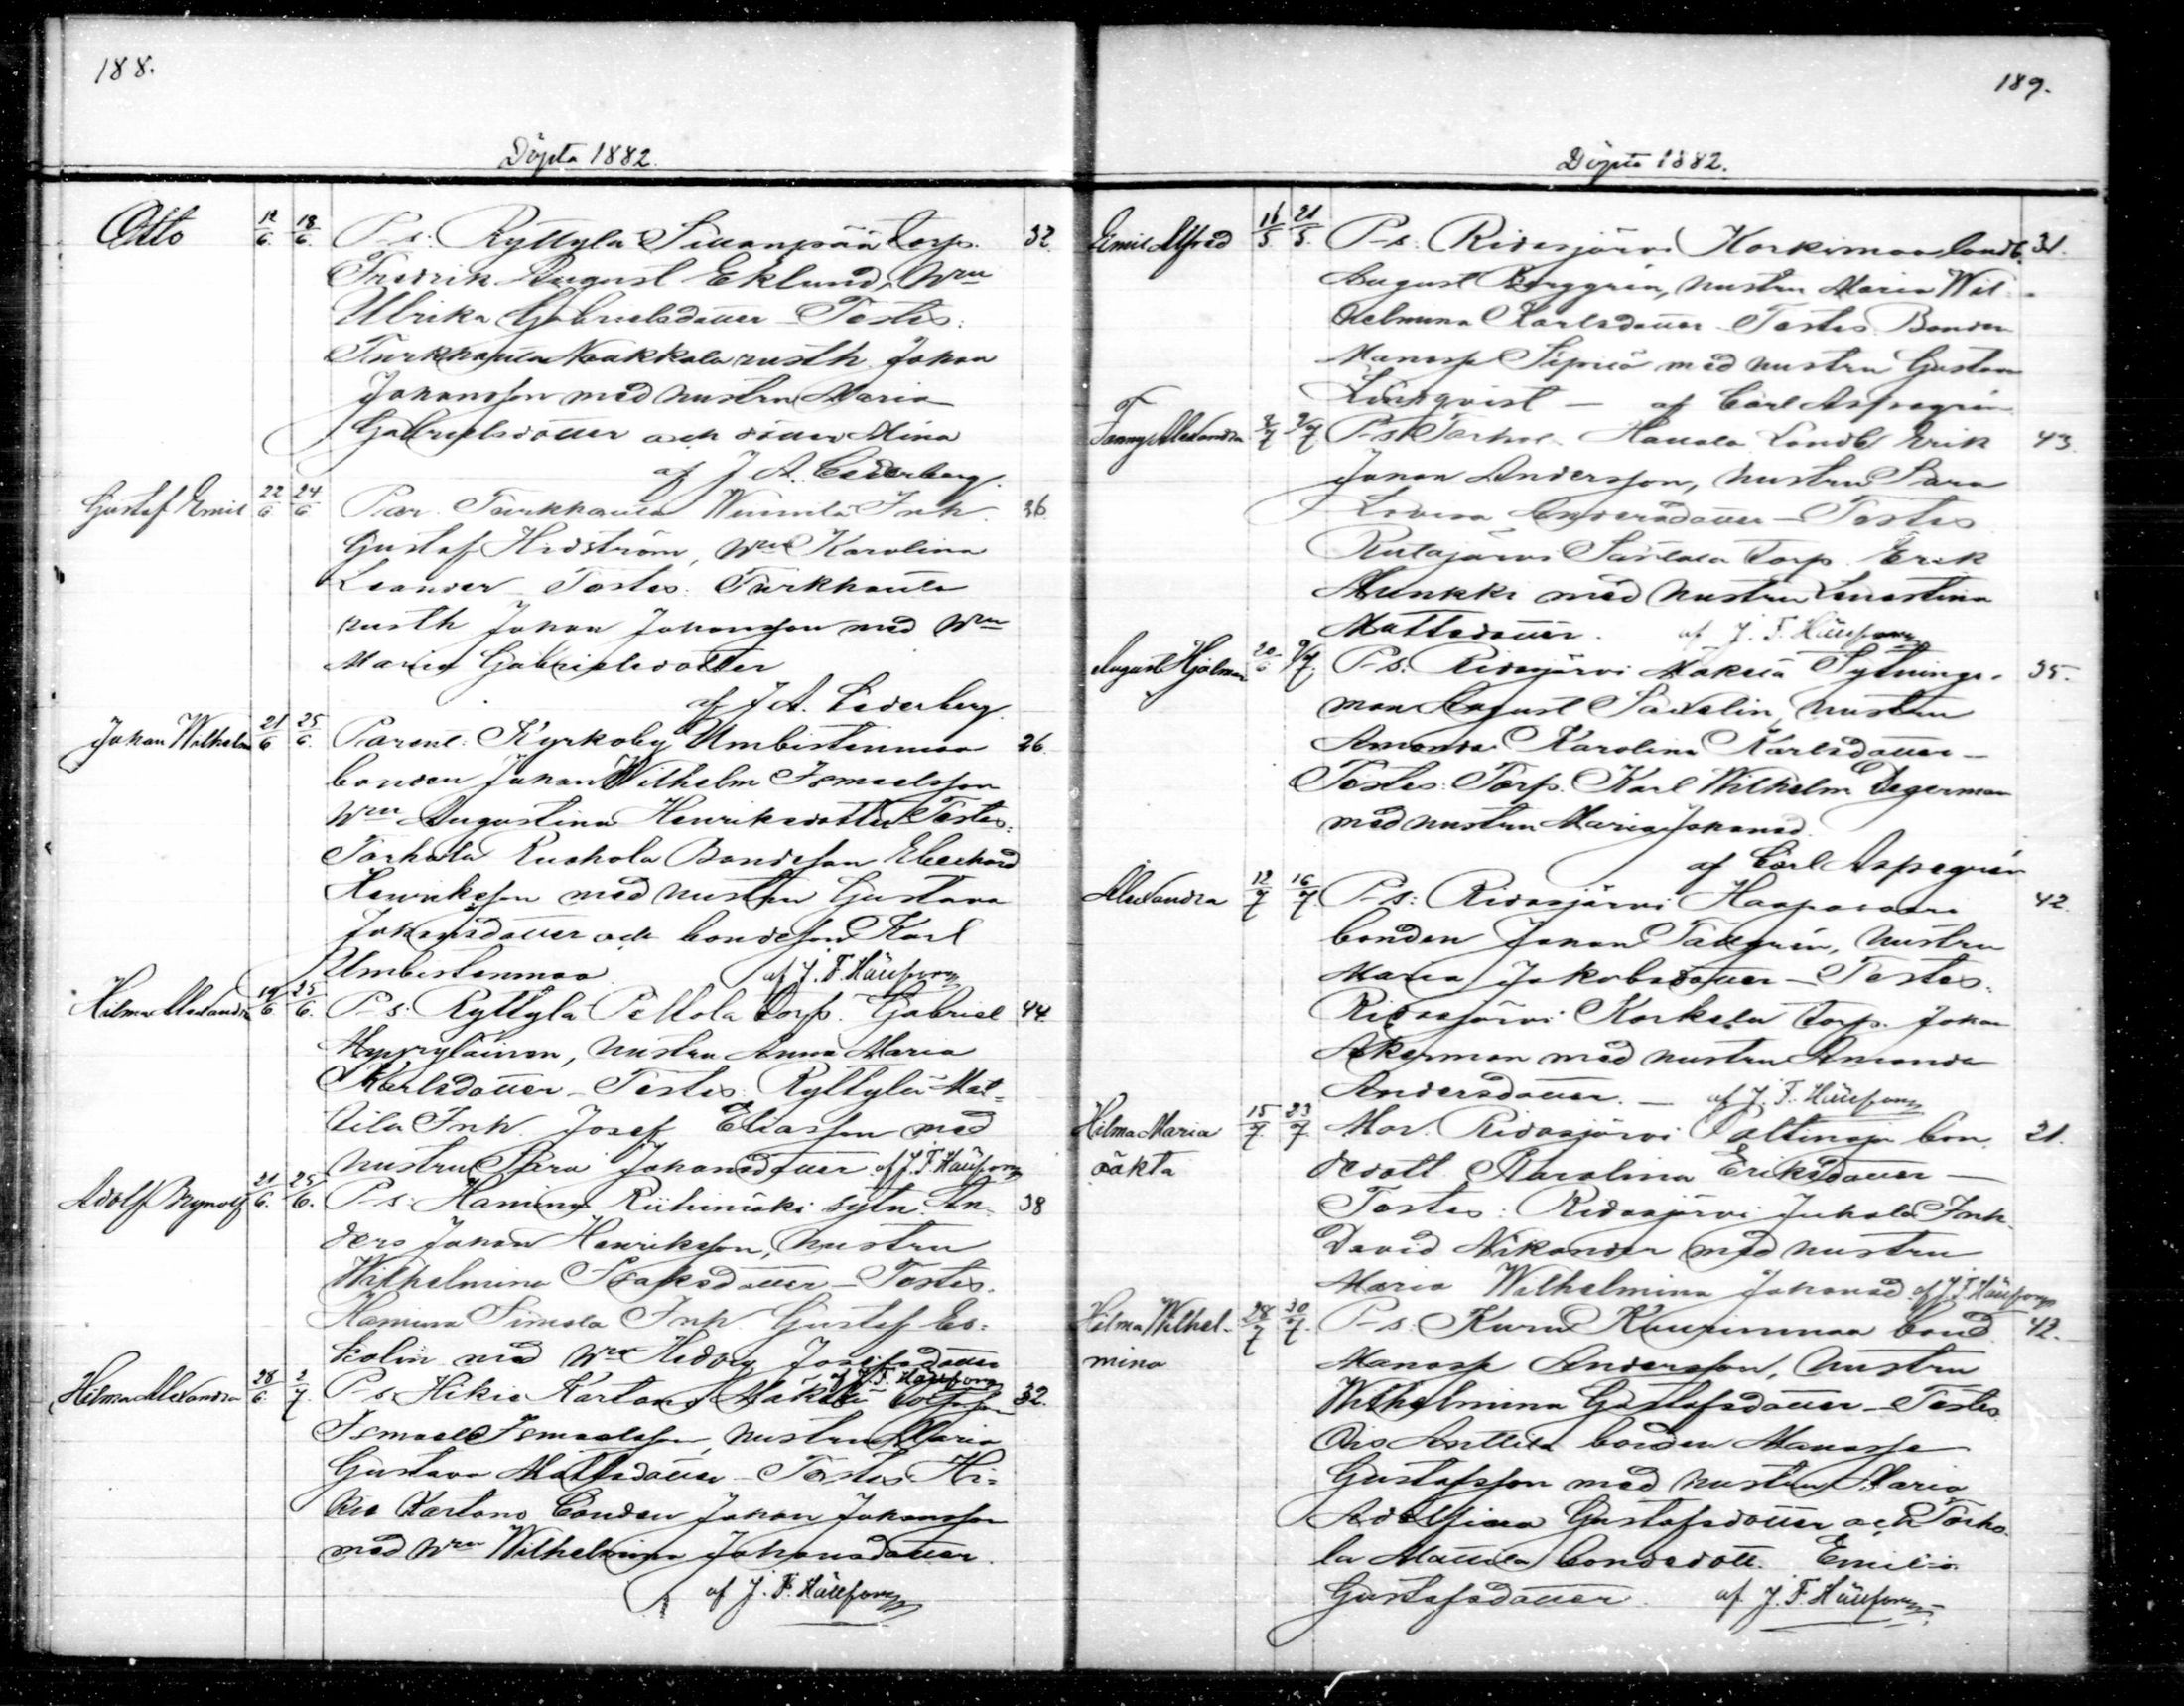 188.
Döpta 1882.
Otto 12/6 18/6 P-s: Ryttylä Sillanpää torp. 32.
Fredrik August Eklund, Hru
Ulrika Gabrielsdotter - Testes:
Turkhauta Naakkala rusth. Johan
Johansson med hustru Maria
Gabrielsdotter och dotter Mina
af J. A. Cederberg.
Gustaf Emil 22/6 24/6 Par. Turkhauta Inh. 26.
Gustaf Hedström, Hru Karolina
Leander - Testes: Turkhauta
rusth Johan Johansson med Hru
Maria Gabrielsdotter
af J. A. Cederberg.
Johan Wilhelm 21/6 25/6. Parent: Kyrkoby Umbistenmaa 26.
bonden Johan Wilhelm Ismaelsson
Hru Augustina Henriksdotter Testes:
Torhola Ruohola Bondeson Eberhard
Henriksson med hustru Gustava
Johansdotter och bondeson Karl
Umbistenmaa. af J. F. Hällfors
Hilma Alexandra 19/6 25/6. P-s: Ryttylä Peltola torp. Gabriel 44.
Hyyryläinen, hustru Anna Maria
Karlsdotter - Testes: Ryttylä Mat=
tila Inh. Josef Eliasson med
hustru Sara Johansdotter af J. F. Hällfors
Adolf Brynolf 21/6. 25/6. P-s: Hamina Riihimäki sytn. An- 38
ders Johan Henriksson, hustru
Wilhelmina Isaksdotter - Testes.
Hamina Simola Inh. Gustaf Es=
kolin med Hru Hedvig Josefsdotter
af J. F. Hällfors
Hilma Alexandra 28/6. 2/7. P-s. Hikiä Kartano Mäkelä torpson 32.
Ismael Ismaelsson, hustru Maria
Gustava Mattsdotter - Testes Hi=
kiä Kartano bonden Johan Johansson
med Hru Wilhelmina Johansdotter.
af J. F. Hällfors
189.
Döpta 1882.
Emil Alfred 16/5 21/5. P-s: Ridasjärvi Korkimaa landb. 31.
August Berggrén, hustru Maria Wil-
helmina Karlsdotter - Testes Bonden
Manasse Sipilä med hustru Gustava
Lindqvist - af Carl Aspegrén
Fanny Alexandra 2/7 9/7 P-s Torhola Landb Erik 43.
Johan Andersson, hustru Sara
Lovisa Andersdotter - Testes
Torp. Erik
Munkki med hustru Ernestina
Mattsdotter. af J. F. Hällfors
August Hjalmar 20/6 9/7. P-s. Ridasjärvi Mäkelä Sytnings- 35.
man August Sadelin, hustru
Amanda Karolina Karlsdotter -
Testes: Torp. Karl Wilhelm Degerman
med hustru Maria Johansd.
af Carl Aspegrén
Alexandra 12/7 16/7. P-s: Ridasjärvi Haapasaari 42.
bonden Johan Tallgrén, hustru
Maria Jakobsdotter - Testes.
Ridasjärvi Korkela torp. Johan
Åkerman med hustru Amanda
Andersdotter. - af J. F. Hällfors
Hilma Maria 15/7. 23/7. Mor. Ridasjärvi bon- 21.
oäkta dedott. Karolina Eriksdotter -
Testes: Ridasjärvi Juhola Inh.
David Nikander med hustru
Maria Wilhelmina Johansd. af J. F. Hällfors
Hilma Wilhel- 28/7 30/7. P-s. Kuru bond. 42.
mina Manasse Andersson, hustru
Wilhelmina Gustafsdotter - Testes
Ois Anttila bonden Manasse
Gustafsson med hustru Maria
Adolfina Gustafsdotter och Torho-
la Mattila bondedott. Emilia
Gustafsdotter. af J. F. Hällfors